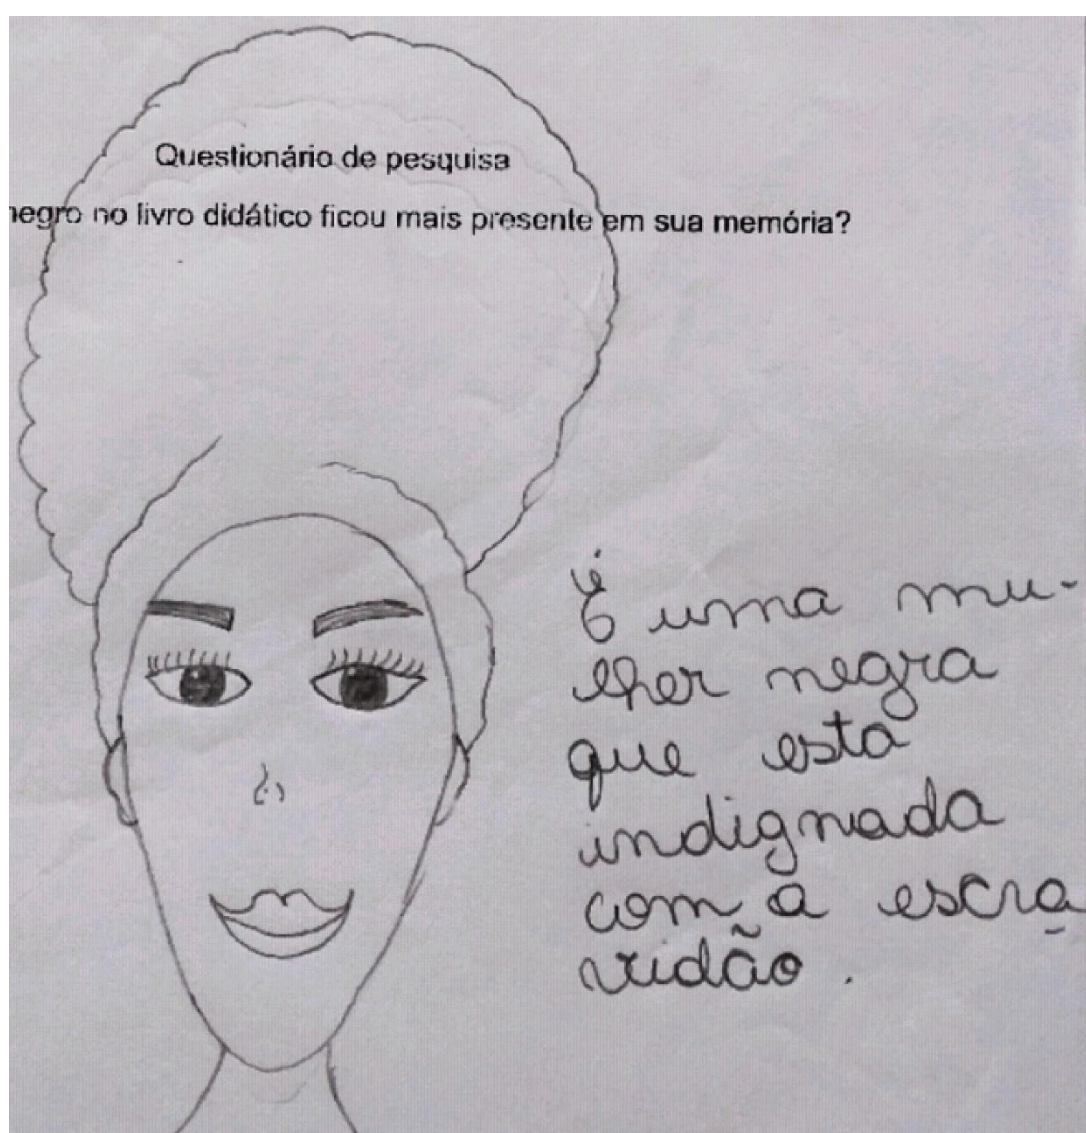 Questionário de pesquisa
negro no livro didático ficou mais presente em sua memória?
É uma mu-
lher negra
que esta
indignada
com a escra
vidão.